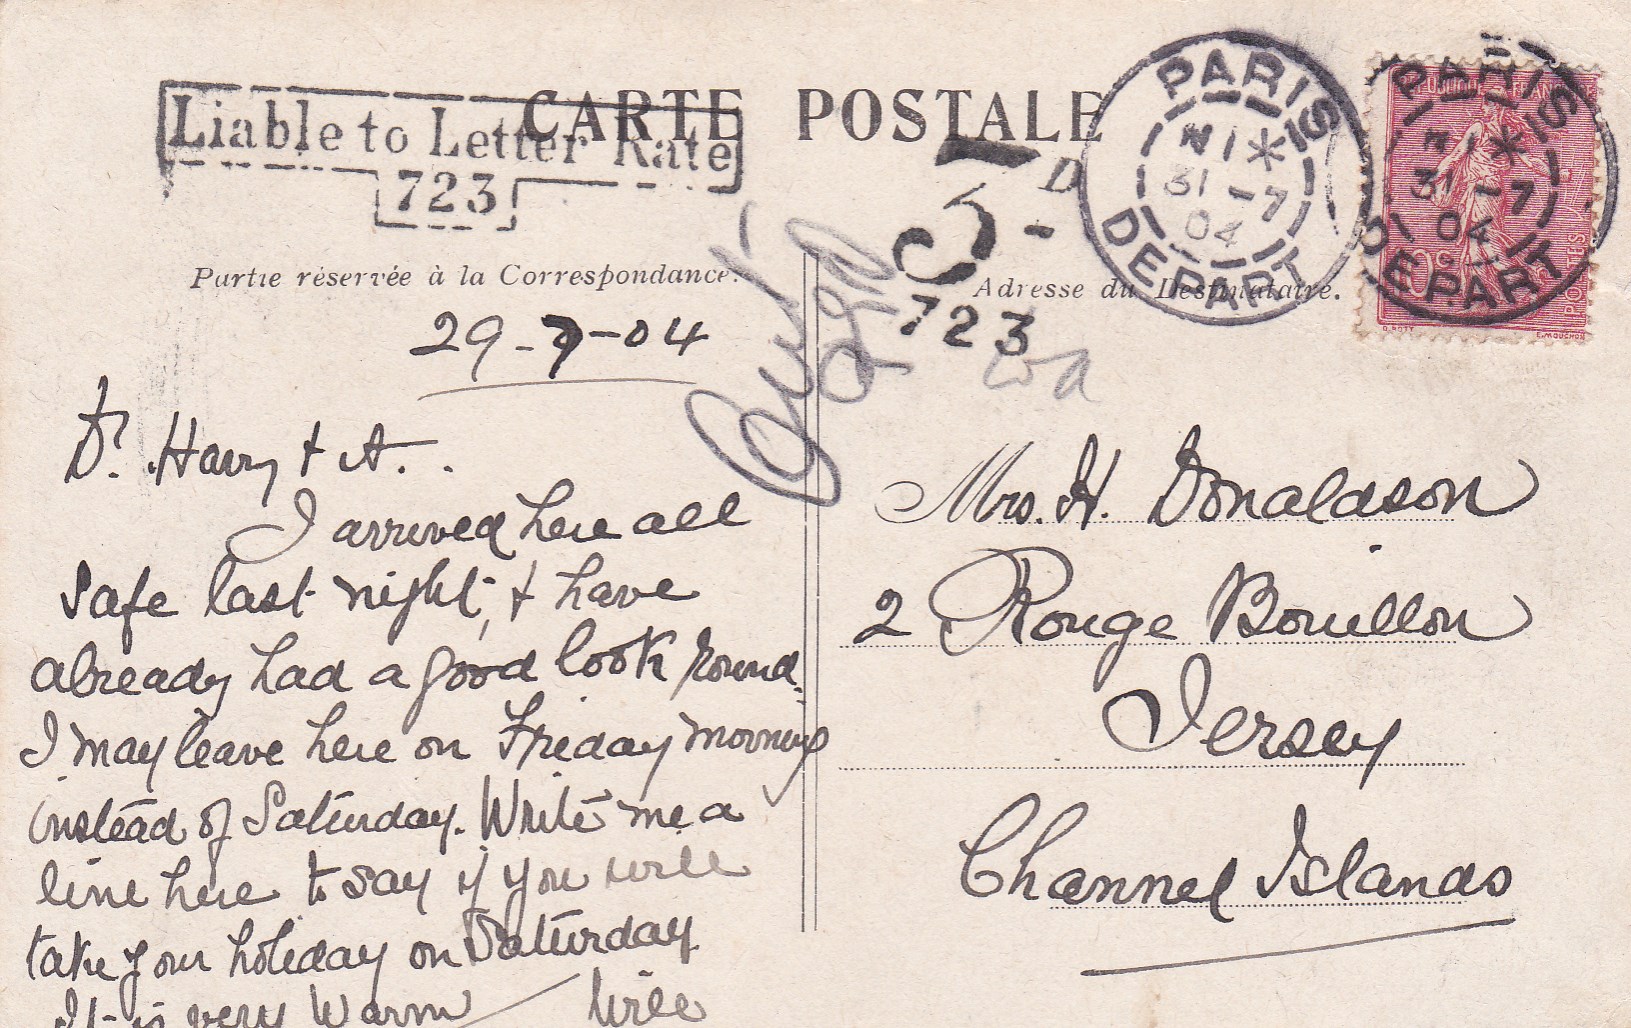 CARTE POSTALE
Liable to Letter Rate
723
Partie réservée à la Correspondance.
Adresse du Destinataire.
PARIS
N 1 * 16
31 - 7
04
DEPART
PARIS
31 - 7
04
DEPART
POSTES
O. ROTY
E. MOUCHON
D
723
29-7-04
Dr. Harry + A.
I arrived here all
safe last night, + have
already had a good look round.
I may leave here on Friday morning
instead of Saturday. Write me a
line here to say if you will
take your holiday on Saturday
It is very warm Will
Mrs. H. Donaldson
2 Rouge Bouillon
Jersey
Channel Islands